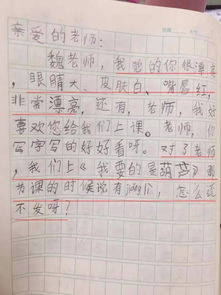 亲爱的老师:
魏老师,我觉的你很漂亮
,眼睛大、皮肤白、嘴唇红,
非常漂亮,还有,老师,我好
喜欢您给我们上课。老师,你
写字写的好好看呀。对了老师
,我们上《我要的是葫芦》那
节课的时候说有，怎么还
不发呀?